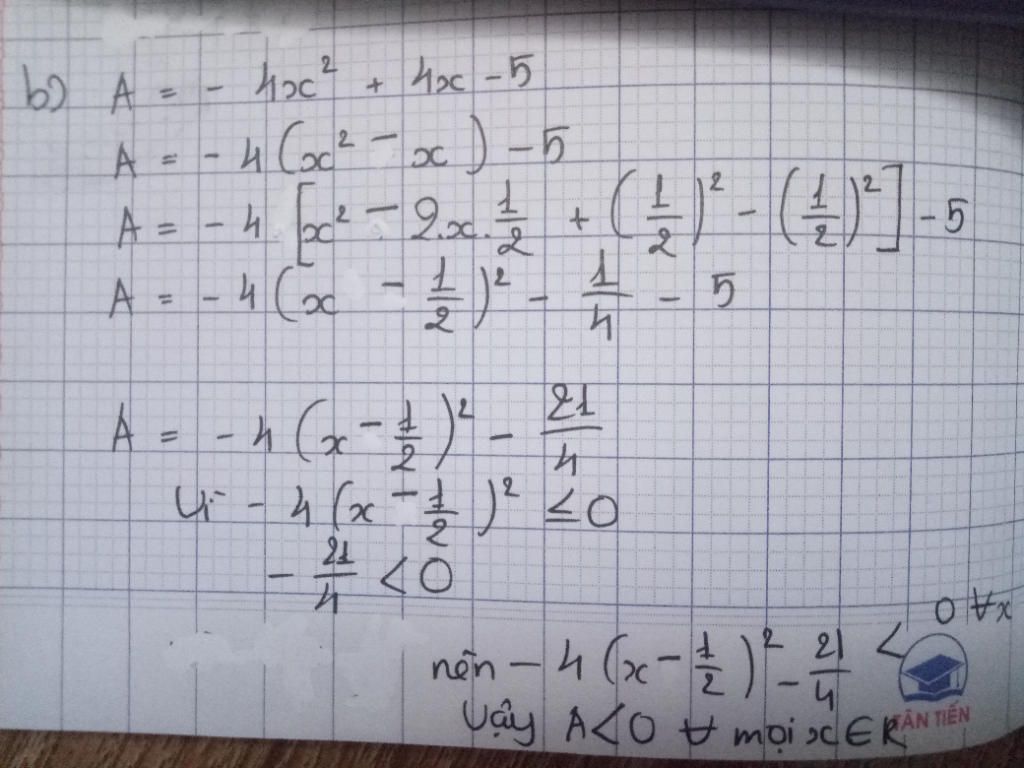 b) A = - 4x² + 4x - 5
A = - 4 (x² - x) - 5
A = - 4 [x² - 2.x.1/2 + (1/2)² - (1/2)²] - 5
A = - 4 (x - 1/2)² - 1/4 - 5
A = - 4 (x - 1/2)² - 21/4
Vì - 4 (x - 1/2)² ≤ 0
- 21/4 < 0
nên - 4 (x - 1/2)² - 21/4 < 0 ∀x
Vậy A < 0 ∀ mọi x ∈ R
TÂN TIẾN